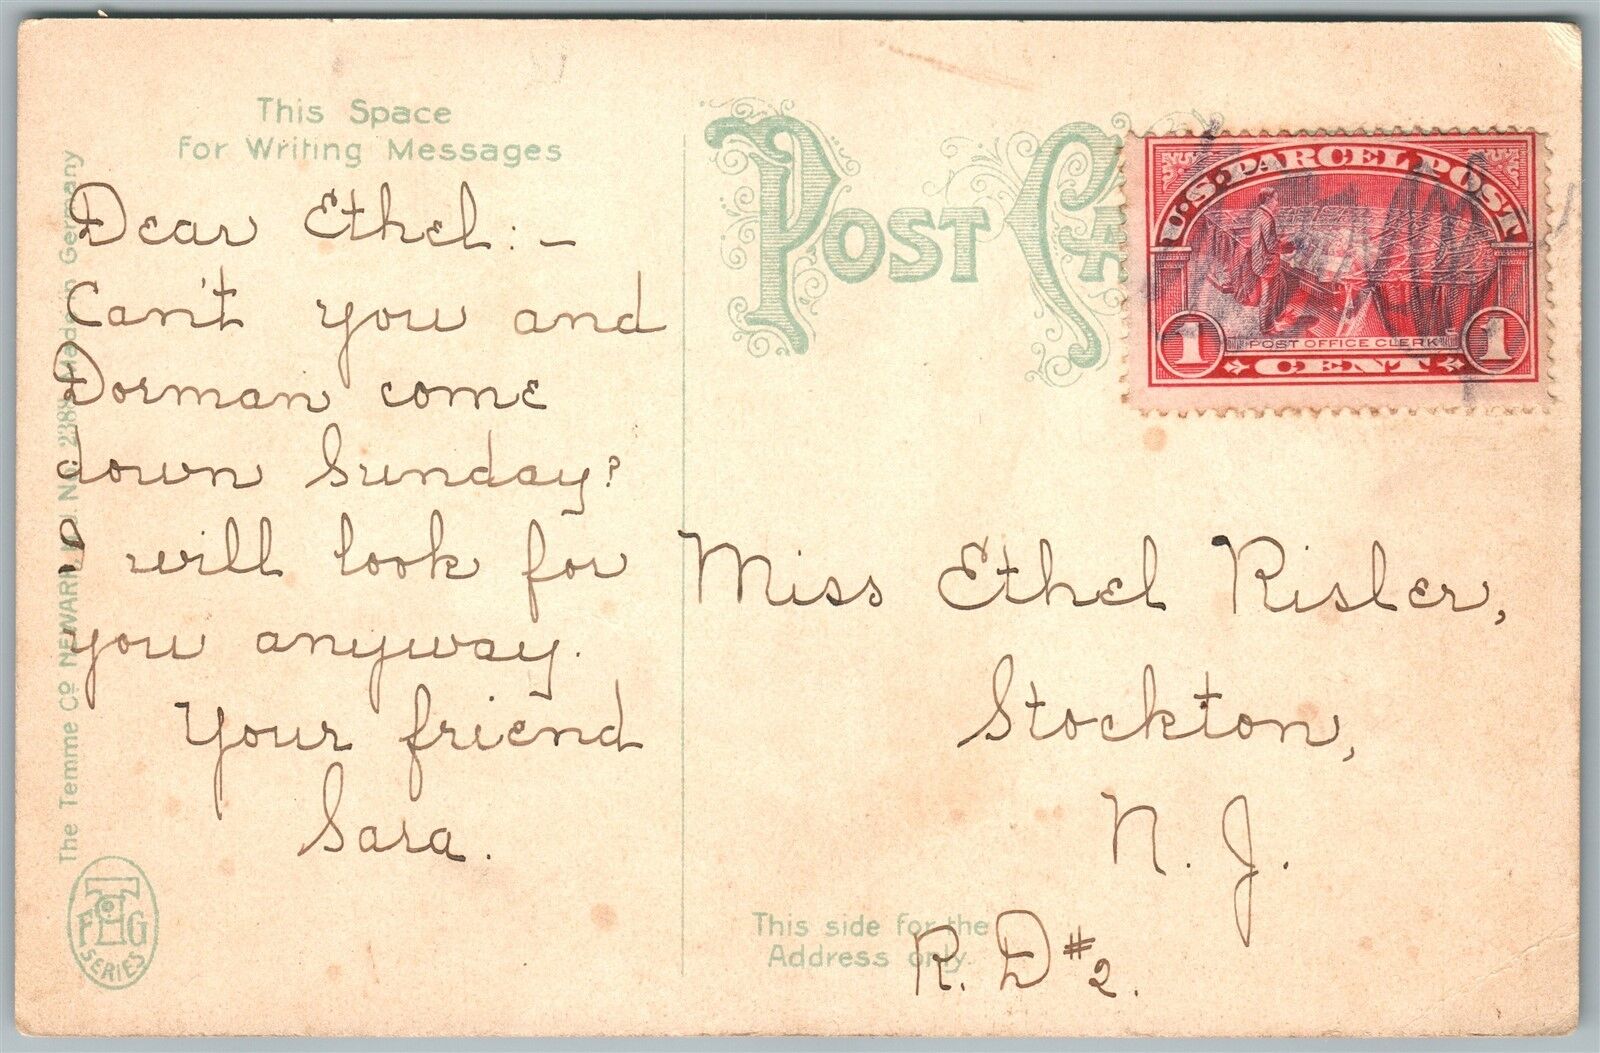 This Space
For Writing Messages
Dear Ethel:-
Can't you and
Dorman come
down Sunday?
I will look for
you anyway.
Your friend
Sara.
The Temme Co NEWARK, N.J. No. 238 Made in Germany
T
F G
SERIES
POST CA
U.S. PARCEL POST
POST OFFICE CLERK
1 CENT 1
Miss Ethel Risler,
Stockton,
N. J.
This side for the
Address only.
R. D #2.